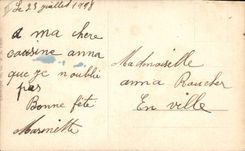 Le 25 juillet 1918
a ma chere
cousine anna
que je n'oublie
pas
Bonne fête
Marinette
Mademoiselle
anna Roucher
En ville